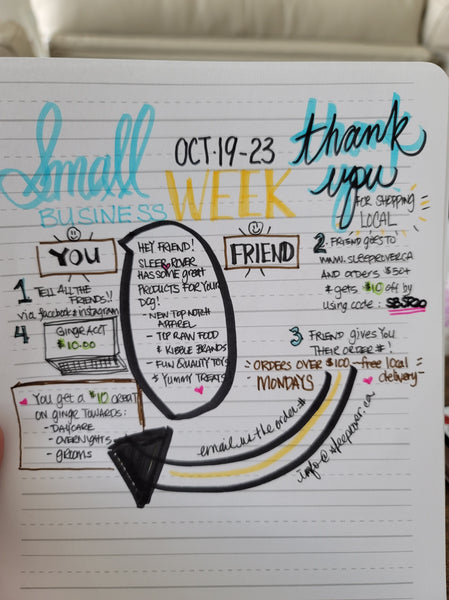 Small
BUSINESS
OCT·19-23
WEEK
thank
you
FOR SHOPPING
LOCAL
YOU
1 TELL ALL THE
FRIENDS!!
via facebook & instagram
4 GINGR ACCT
$10.00
You get a $10 credit
on gingr towards:
- DAYCARE
- OVERNIGHTS
- GROOMS
HEY FRIEND!
SLEEP ROVER
HAS SOME great
PRODUCTS FOR YOUR
DOG!
- NEW TOP NOTCH
APPAREL
- TOP RAW FOOD
& KIBBLE BRANDS
- FUN QUALITY TOYS
& YUMMY TREATS
FRIEND
2 FRIEND GOES TO
WWW.SLEEPROVER.CA
AND ORDERS $50+
& gets $10 off by
using code:
3 FRIEND GIVES YOU
THEIR ORDER #!
- ORDERS OVER $100 - free local
MONDAYS delivery -
email us the order #
info@sleeprover.ca